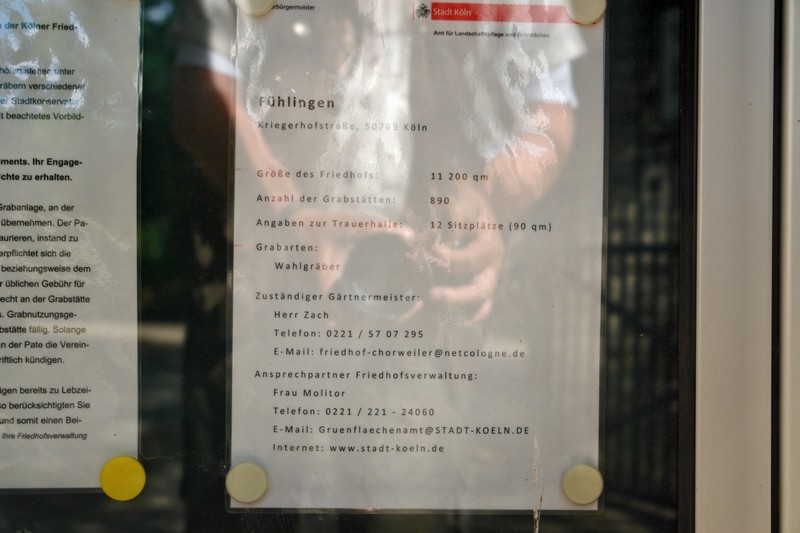 der Kölner Fried-
stehen unter
räbern verschiedener
er Stadtkonservator
t beachtetes Vorbild-
ments. Ihr Engage-
chte zu erhalten.
Grabanlage, an der
übernehmen. Der Pa-
aurieren, instand zu
erpflichtet sich die
beziehungsweise dem
r üblichen Gebühr für
echt an der Grabstätte
s. Grabnutzungsge-
bstätte fällig. Solange
n der Pate die Verein-
riftlich kündigen.
igen bereits zu Lebzei-
so berücksichtigten Sie
und somit einen Bei-
Ihre Friedhofsverwaltung
rbürgermeister
Stadt Köln
Amt für Landschaftspflege und Grünflächen
Fühlingen
Kriegerhofstraße, 50769 Köln
Größe des Friedhofs: 11 200 qm
Anzahl der Grabstätten: 890
Angaben zur Trauerhalle: 12 Sitzplätze (90 qm)
Grabarten:
Wahlgräber
Zuständiger Gärtnermeister:
Herr Zach
Telefon: 0221 / 57 07 295
E-Mail: friedhof-chorweiler@netcologne.de
Ansprechpartner Friedhofsverwaltung:
Frau Molitor
Telefon: 0221 / 221 - 24060
E-Mail: Gruenflaechenamt@STADT-KOELN.DE
Internet: www.stadt-koeln.de